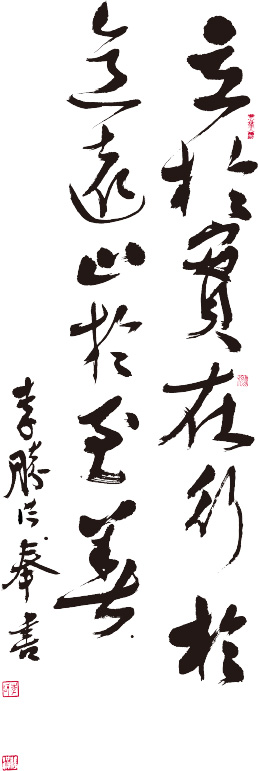 立於實在行於
高遠止於至善
李勝奉書